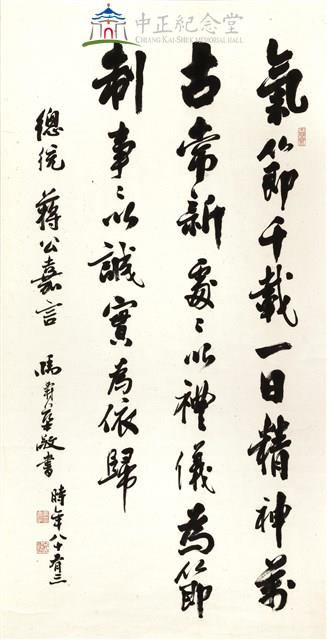 中正紀念堂
CHIANG KAI-SHEK MEMORIAL HALL
氣節千載一日精神萬
古常新處〻以禮儀為節
制事〻以誠實為依歸
總統 蔣公嘉言 敬書 時年八十有三